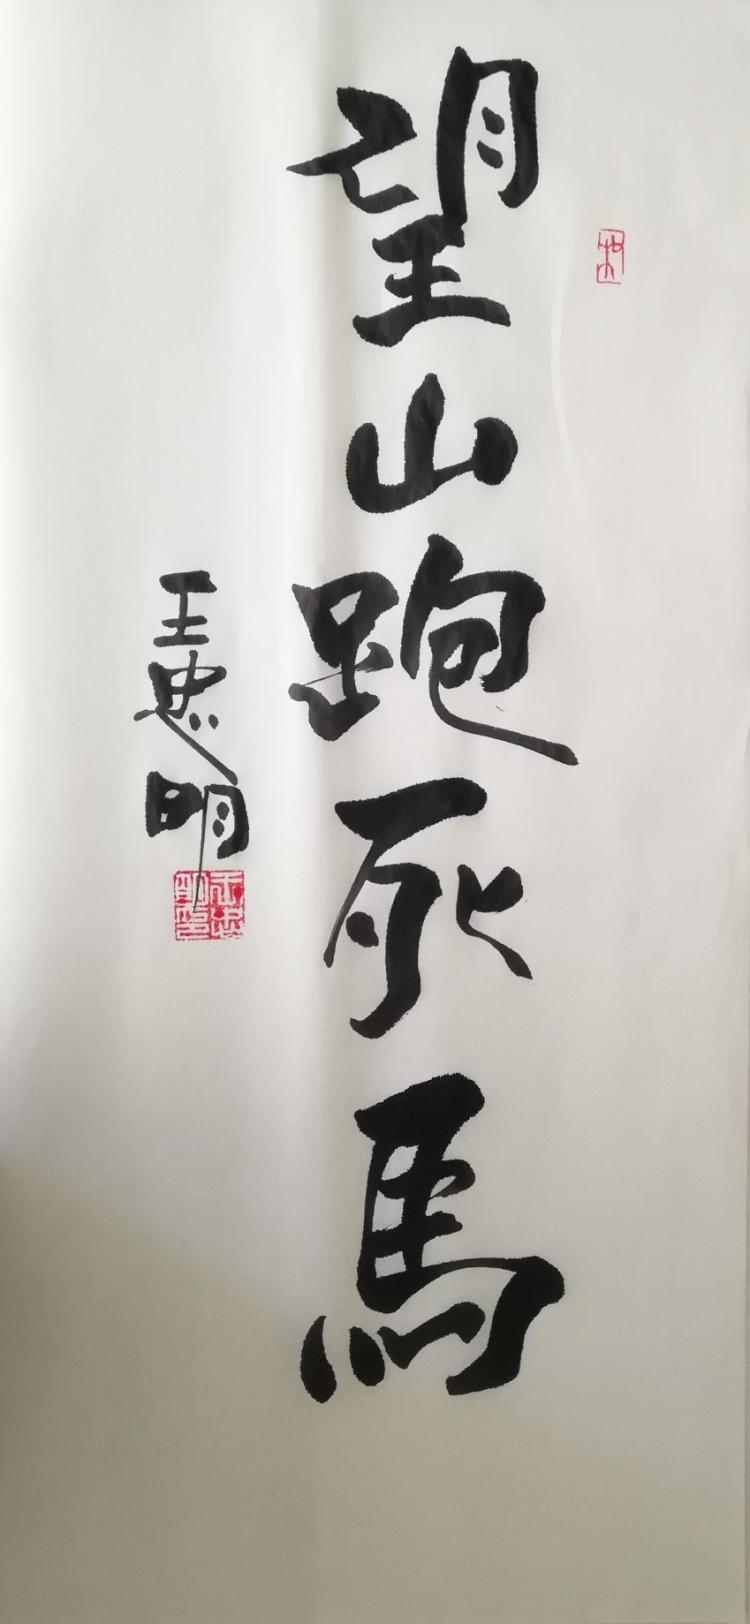 望山跑死馬
王忠明